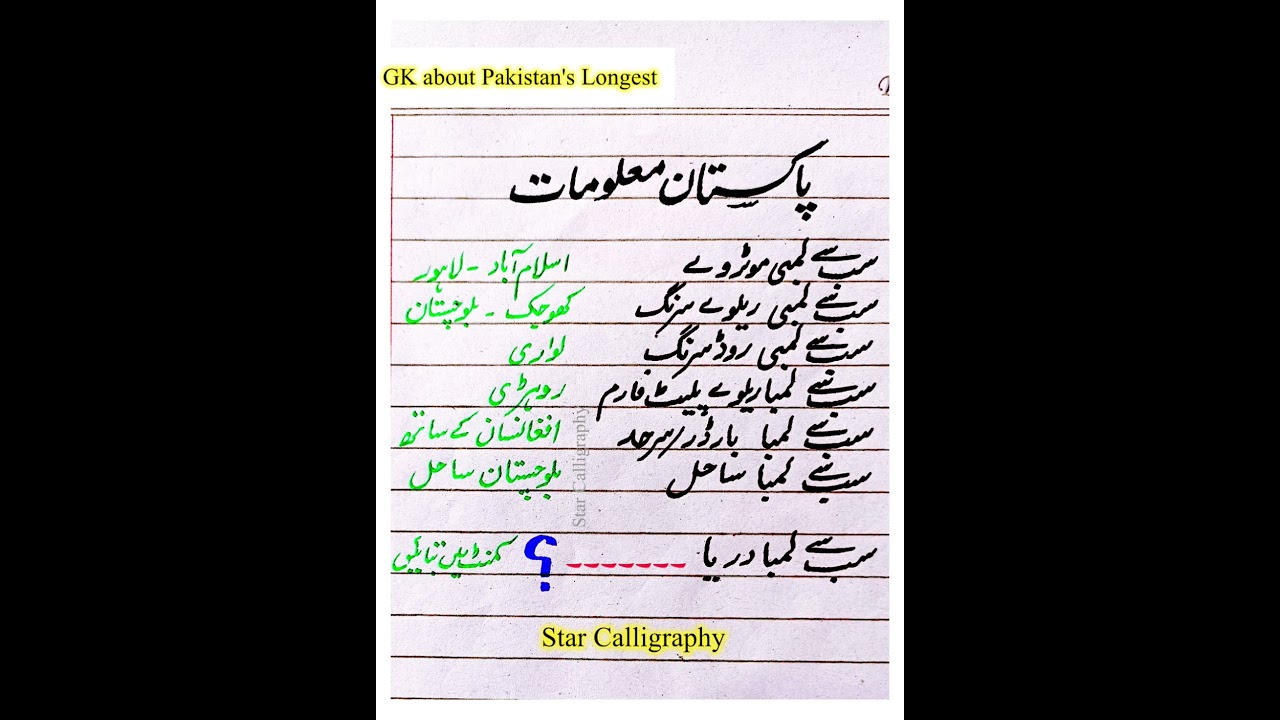 GK about Pakistan's Longest
پاکستان معلومات
سب سے لمبی موٹروے اسلام آباد - لاہور
سب سے لمبی ریلوے سرنگ کھوجک - بلوچستان
سب سے لمبی روڈ سرنگ لواری
سب سے لمبا ریلوے پلیٹ فارم روہڑی
سب سے لمبا بارڈر/سرحد افغانستان کے ساتھ
سب سے لمبا ساحل بلوچستان ساحل
سب سے لمبا دریا ------- ؟ کمنٹ میں بتائیں
Star Calligraphy
Star Calligraphy